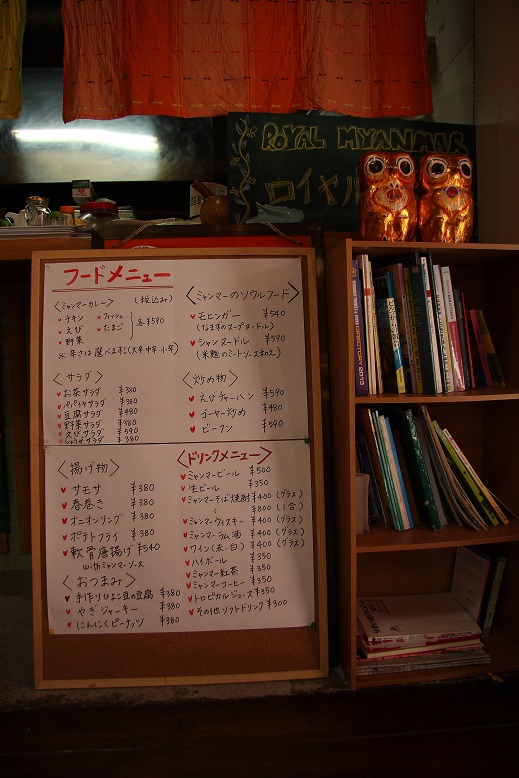 ROYAL MYANMAR
ロイヤル
フードメニュー
〈ミャンマーカレー〉 (税込み)
♥チキン ♥フィッシュ
♥えび ♥たまご 各¥590
♥野菜
※辛さは選べます!(大辛 中辛 小辛)
〈ミャンマーのソウルフード〉
♥モヒンガー ¥540
(なまずのスープヌードル)
♥シャンヌードル ¥590
(米麺のミートソース和え)
〈サラダ〉
♥お茶サラダ ¥380
♥パパイヤサラダ ¥380
♥豆腐サラダ ¥480
♥野菜サラダ ¥480
♥えびサラダ ¥590
♥しょうがサラダ ¥380
〈炒め物〉
♥えびチャーハン ¥590
♥ゴーヤー炒め ¥480
♥ビーフン ¥540
〈揚げ物〉
♥サモサ ¥380
♥春巻き ¥380
♥オニオンリング ¥380
♥ポテトフライ ¥380
♥軟骨唐揚げ ¥540
withミャンマーソース
〈おつまみ〉
♥手作りひよこ豆の豆腐 ¥380
♥やぎジャーキー ¥380
♥にんにくピーナッツ ¥380
〈ドリンクメニュー〉
♥ミャンマービール ¥500
♥生ビール ¥350
♥ミャンマーそば焼酎 ¥400 (グラス)
〃 ¥800 (1合)
♥ミャンマーウィスキー ¥400 (グラス)
♥ミャンマーラム酒 ¥400 (グラス)
♥ワイン(赤・白) ¥400 (グラス)
♥ハイボール ¥350
♥ミャンマー紅茶 ¥350
♥ミャンマーコーヒー ¥350
♥トロピカルジュース ¥350
♥その他ソフトドリンク ¥300
DIRECTORY 2013